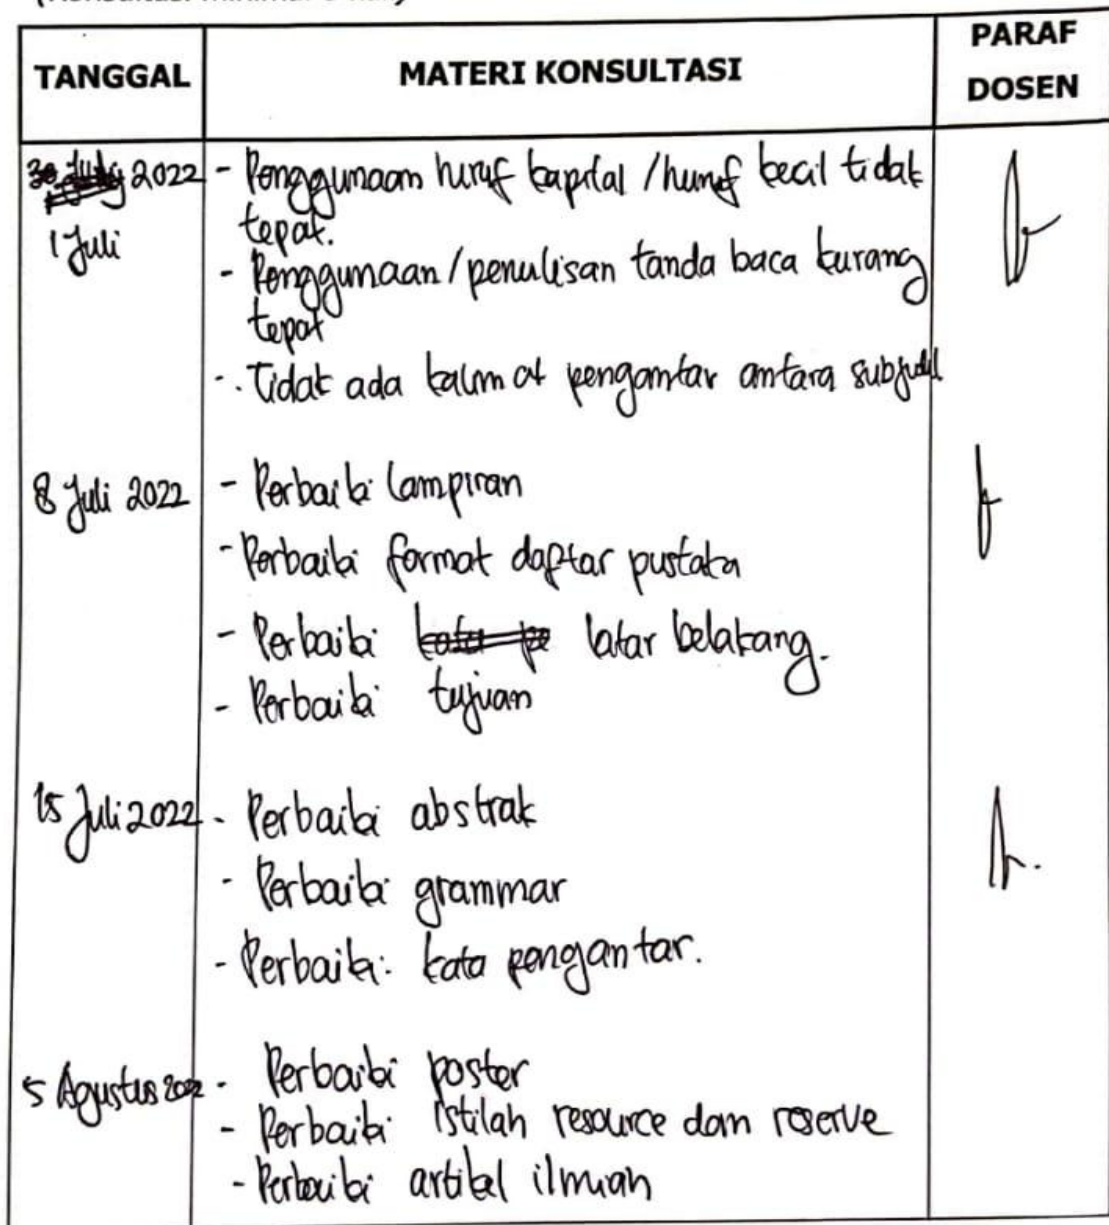 TANGGAL MATERI KONSULTASI PARAF
DOSEN
2022 - Penggunaan huruf kapital / huruf kecil tidak
tepat.
1 Juli
- Penggunaan / penulisan tanda baca kurang
tepat
- . Tidak ada kalimat pengantar antara subjudul
8 Juli 2022 - Perbaiki lampiran
- Perbaiki format daftar pustaka
- Perbaiki latar belakang.
- Perbaiki tujuan
15 Juli 2022 - Perbaiki abstrak
- Perbaiki grammar
- Perbaiki kata pengantar.
5 Agustus 2022 - Perbaiki poster
- Perbaiki istilah resource dan reserve
- Perbaiki artikel ilmiah